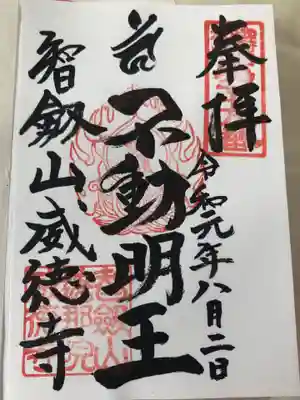 奉拝
令和元年八月二日
不動明王
智剱山威徳寺